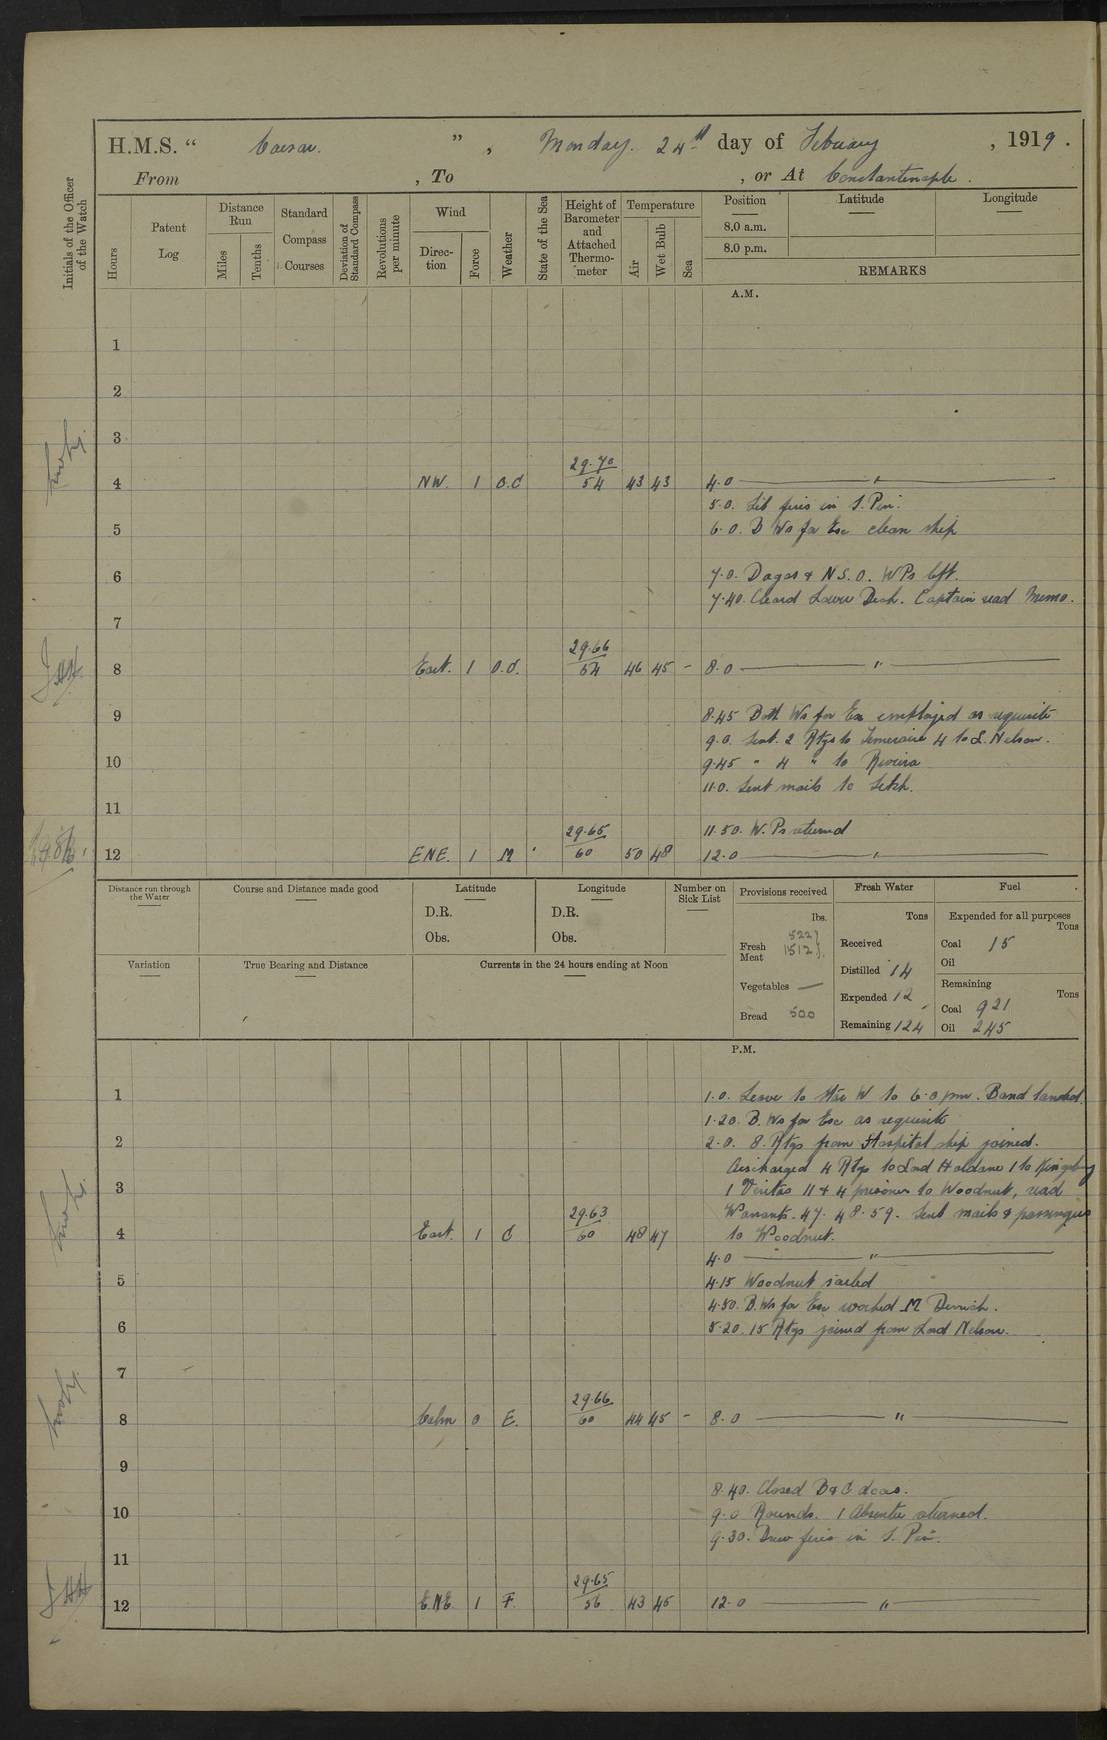 H.M.S. “ Caesar. ” , Monday. 24th day of February , 1919.
From , To , or At Constantinople.
Initials of the Officer of the Watch
Hours
Patent Log
Distance Run
Miles
Tenths
Standard Compass Courses
Deviation of Standard Compass
Revolutions per minute
Wind
Direc-tion
Force
Weather
State of the Sea
Height of Barometer and Attached Thermo-meter
Temperature
Air
Wet Bulb
Sea
Position Latitude Longitude
8.0 a.m.
8.0 p.m.
REMARKS
A.M.
1
2
3
29.70
4 NW. 1 O.C 54 43 43 4.0 ——— " ———
5.0. Lit fires in S. Pin.
5 6.0. B Ws for Exc clean ship
6 7.0. Dagas & N.S.O. W Ps left.
7.40. Cleard Lower Deck. Captain read Memo.
7
29.66
8 East. 1 O.C. 54 46 45 - 8.0 ——— " ———
9 8.45 Both Ws for Ex employed as requisite
9.0. Sent. 2 Rtgs to Temeraire 4 to L. Nelson.
10 9.45 " 4 " to Riviera
11.0. Sent mails to
11
29.65 11.50. W. Ps returned
12 ENE. 1 M 60 50 48 12.0 ——— " ———
Distance run through the Water
Course and Distance made good
Latitude
D.R.
Obs.
Longitude
D.R.
Obs.
Number on Sick List
Provisions received
lbs.
Fresh Meat 522 } 1512 }
Vegetables —
Bread 500
Fresh Water
Tons
Received
Distilled 14
Expended 12
Remaining 124
Fuel
Expended for all purposes
Tons
Coal 15
Oil
Remaining
Tons
Coal 921
Oil 245
Variation
True Bearing and Distance
Currents in the 24 hours ending at Noon
P.M.
1 1.0. Leave to Star W to 6.0 pm. Band landed.
1.20. B. Ws for Exc as requisite
2 2.0. 8. Rtgs from Hospital ship joined.
discharged 4 Rtgs to Lord Haldane 1 to
3 1 Veritas 11 & 4 prisoners to Woodnut, read
29.63 Warrants. 47. 48. 59. Sent mails & passengers
4 East. 1 C 60 48 47 to Woodnut.
4.0 ——— " ———
5 4.15 Woodnut sailed
4.50. B. Ws for Exc worked M Derrick.
6 5.20. 15 Rtgs joined from Lord Nelson.
7
29.66
8 Calm 0 E. 60 44 45 - 8.0 ——— " ———
9
8.40. Closed B & C doors.
10 9.0 Rounds. 1 Absentee returned.
9.30. Drew fires in S. Pin.
11
29.65
12 E.N.E. 1 F. 56 43 45 12.0 ——— " ———